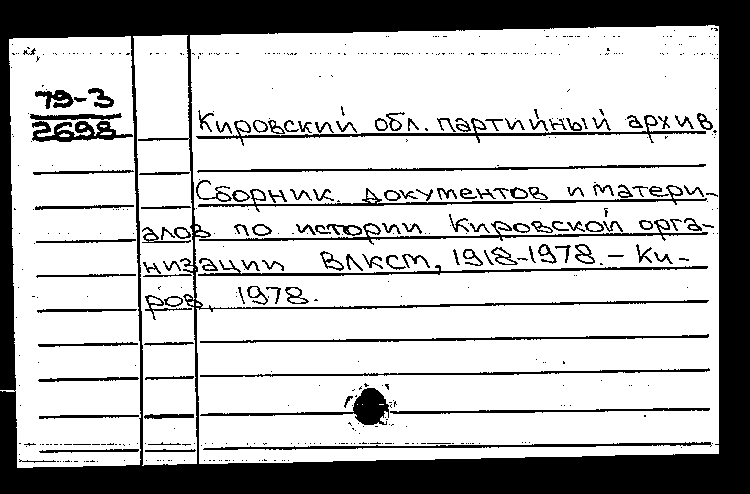 79-3
2698
Кировский обл. партийный архив.
Сборник документов и матери-
алов по истории Кировской орга-
низации ВЛКСМ, 1918-1978. - Ки-
ров, 1978.